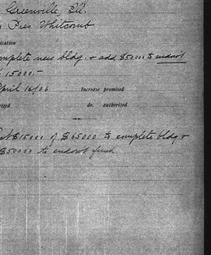 Greenville, Ill.
Pres Whitcomb
ication
omplete new bldg. + add $50000 to endowt
15000.—
April 16/06 Increase promised
ized do. authorized
ast $15000 of $65000 to complete bldg +
$50000 to endowt fund